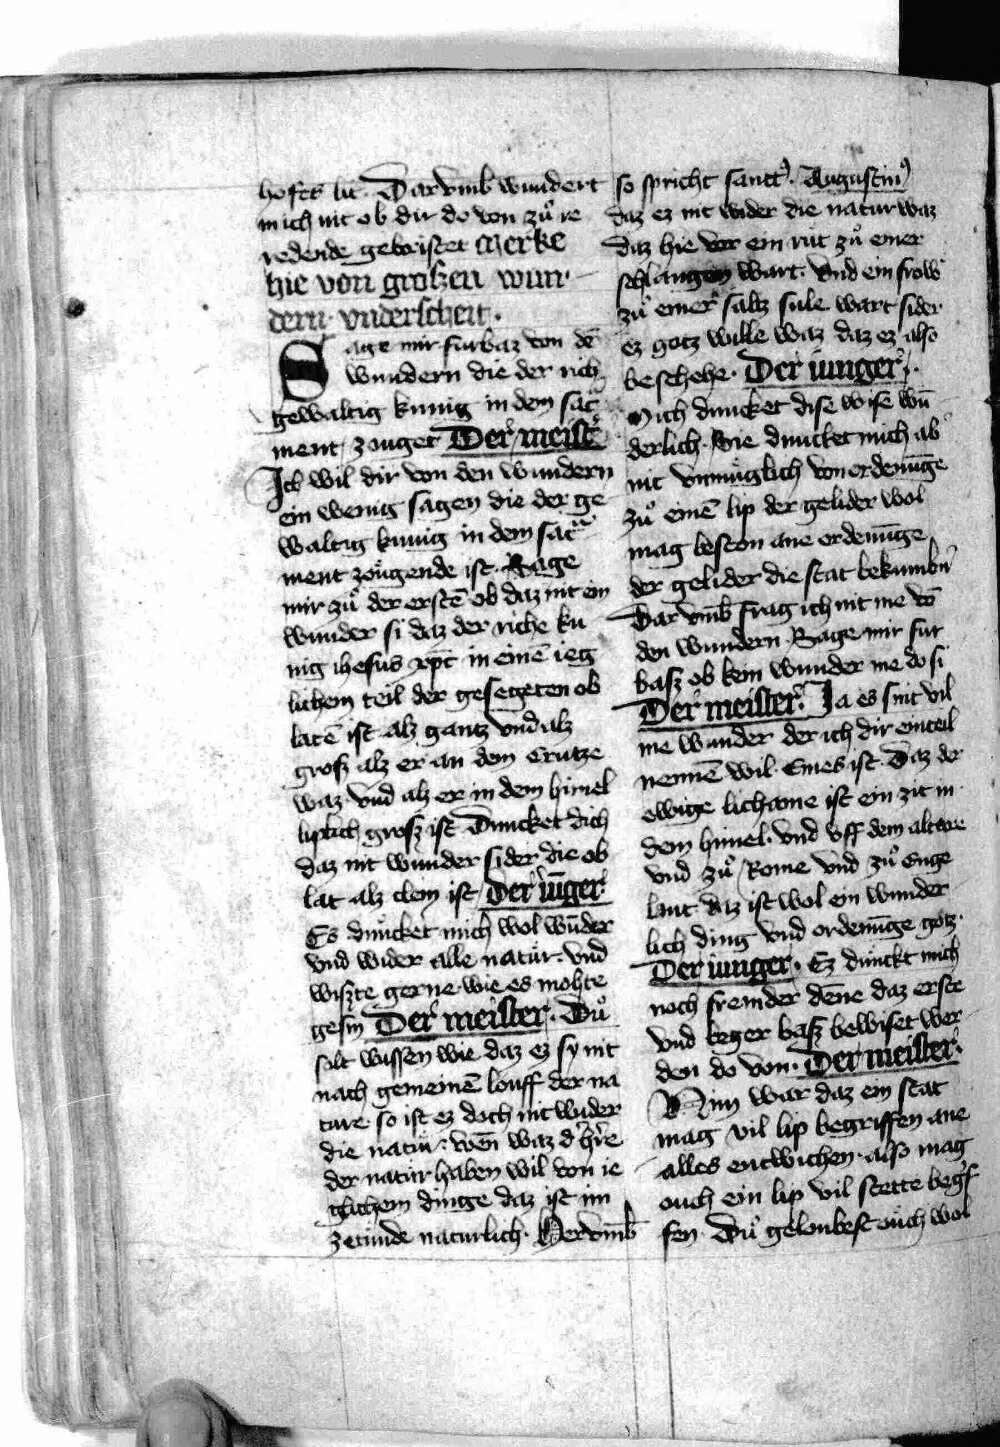 hofes lit. Dar vmb wundert
mich nit ob dir do von zuͦ re
redende gebristet Merke
hie von groszen wun
dern vnderscheit.
Sage mir furbaz von dē
wundern die der rich
gewaltig kunig in dem sac̄
ment zouget Der meist͛
Ich wil dir von den wundern
ein wenig sagen die der ge
waltig kunig in dem sac̄
ment zoͤugende ist. Sage
mir zuͦ der erstē ob daz nit ein
wunder si daz der riche ku
nig ihesus xp̄c in einē ieg
lichem teil der gesegeten ob
latē ist alz gantz vnd alz
grosz alz er an dem Crutze
waz vnd alz er in dem himel
liplich grosz ist Duncket dich
daz nit wunder sider die ob
lat alz clein ist Der iūger
Es duncket mich wol wūder
vnd wider alle natur. vnd
wiszte gerne wie es mohte
gesin Der meister. Duͦ
solt wissen wie daz ez sy nit
nach gemeinē louff der na
ture so ist ez doch nit wider
die natur. wēn waz d͛ h͛re
der natur haben wil von ie
glichem dinge daz ist im
zetunde naturlich. Her vmb
so spricht sanct⁹. Augustin⁹
daz ez nit wider die natur waz
daz hie vor ein ruͤt zuͦ einer
schlangen wart. vnd ein frow
zuͦ einer saltz sule wart sider
ez gotz wille waz daz ez also
beschehe. Der iunger.
Mich duncket dise wise wū
derlich. Sie duncket mich ab͛
nit vnmuͤglich von ordenūge
zuͦ einē lip der gelider wol
mag beston ane ordenūge
der gelider die stat bekumbn͛
Dar vmb frag ich nit me vō
den wundern. Sage mir fur
basz ob kein wunder me do si
Der meister. Ja es sint vil
me wunder der ich dir ein teil
nennē wil. Eines ist. Daz der
ewige lichame ist ein zit in
dem himel. vnd vff dem altare
vnd zuͦ Rome vnd zuͦ Enge
lant daz ist wol ein wunder
lich ding vnd ordenūge gotz.
Der iunger. Ez dunckt mich
noch fremder dēne daz erste
vnd beger basz bewiset wer
den do von. Der meister.
Nim war daz ein stat
mag vil lip begriffen ane
alles entwichen. also mag
ouch ein lip vil stette beg͛f
fen. Duͦ geloubest ouch wol